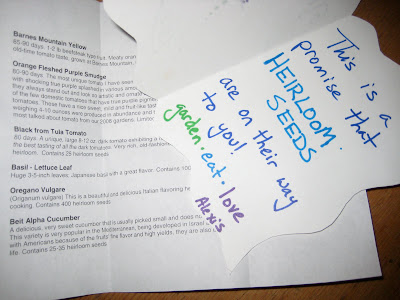 Barnes Mountain Yellow
65-90 days. 1-2 lb beefsteak type fruit. Meaty oran
old-time tomato taste, grown at Barnes Mountain,
Orange Fleshed Purple Smudge
80-90 days. The most unique tomato I have seen
with shocking true purple splashed in various amou
they always stand out and look so artistic and ornam
of the few domestic tomatoes that have true purple pigme
tomatoes. These have a nice sweet, mild and fruit-like taste
weighing 4-10 ounces were produced in abundance and
most talked about tomato from our 2008 gardens. Limited
Black from Tula Tomato
80 days. A unique, large 8-12 oz. dark tomato exhibiting a
the best tasting of all the dark tomatoes. Very rich, old-fashion
heirloom. Contains 25 heirloom seeds
Basil - Lettuce Leaf
Huge 3-5 inch leaves. Japanese basil with a great flavor. Contains 100
Oregano Vulgare
(Origanum vulgare) This is a beautiful and delicious Italian flavoring he
cooking. Contains 400 heirloom seeds
Beit Alpha Cucumber
A delicious, very sweet cucumber that is usually picked small and does no
This variety is very popular in the Mediterranean, being developed in Israel
with Americans because of the fruits' fine flavor and high yields, they are also
life. Contains 25-35 heirloom seeds
This is a
promise that
HEIRLOOM
SEEDS
are on their way
to you!
garden · eat · love
Alexis